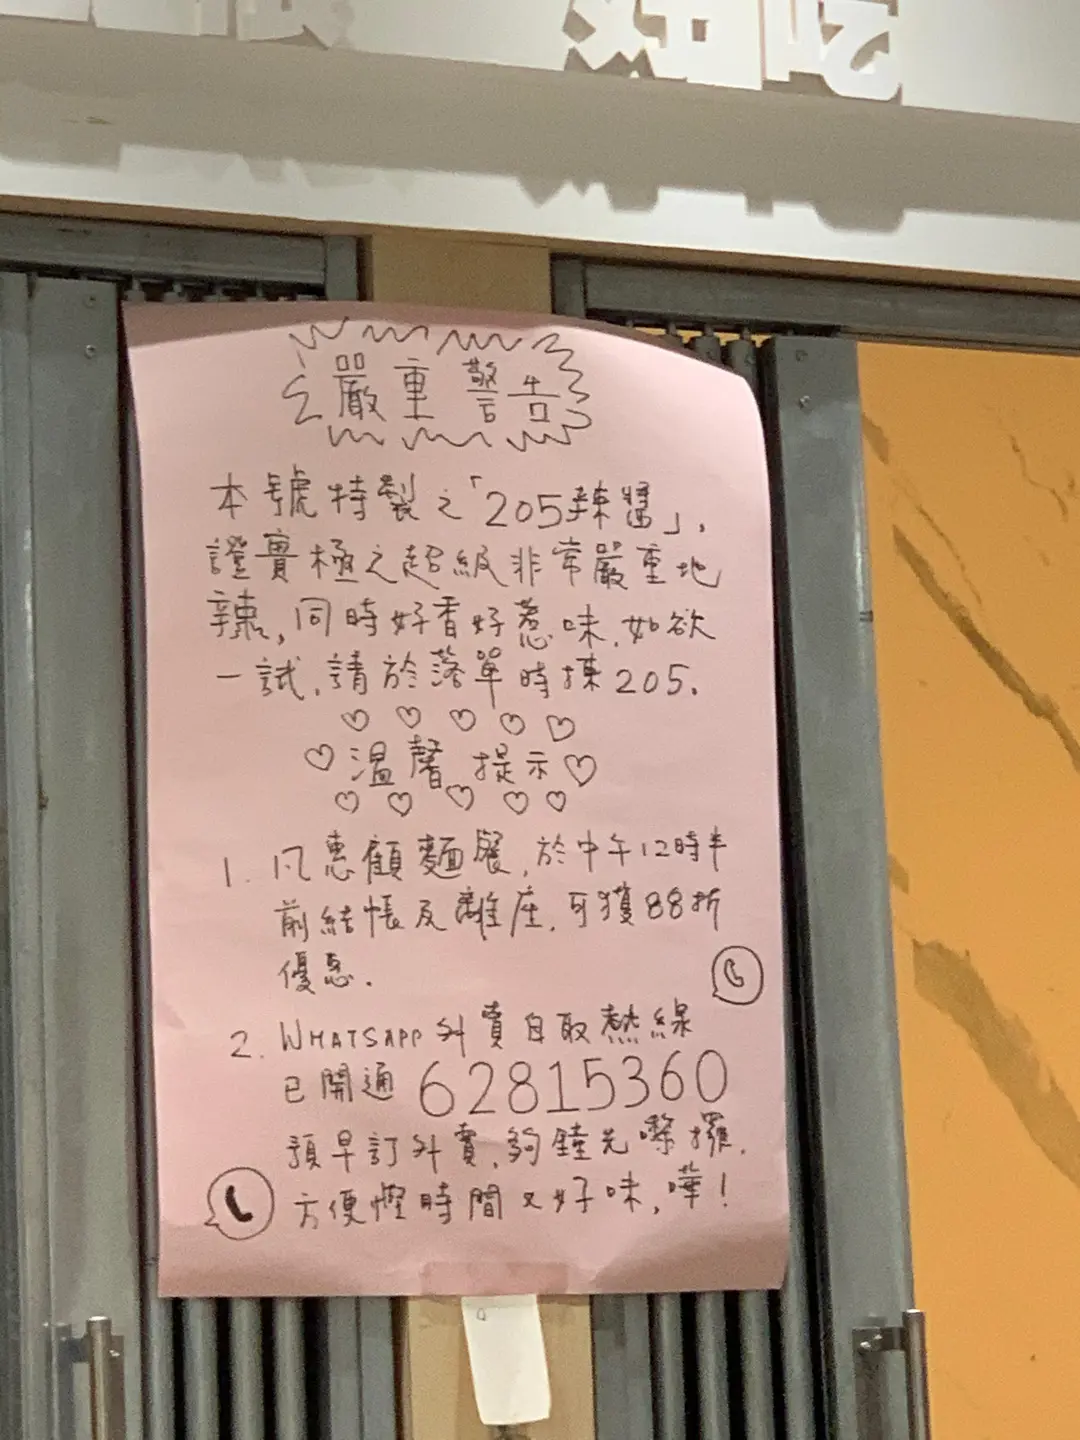 好吃
嚴重警告
本號特製之「205辣醬」,
證實極之超級非常嚴重地
辣,同時好香好惹味,如欲
一試,請於落單時揀205.
溫馨提示
1. 凡惠顧麵餐,於中午12時半
前結帳及離座,可獲88折
優惠.
2. WHATSAPP外賣自取熱線
已開通 62815360
預早訂外賣,夠鐘先嚟攞,
方便慳時間又好味,嘩!